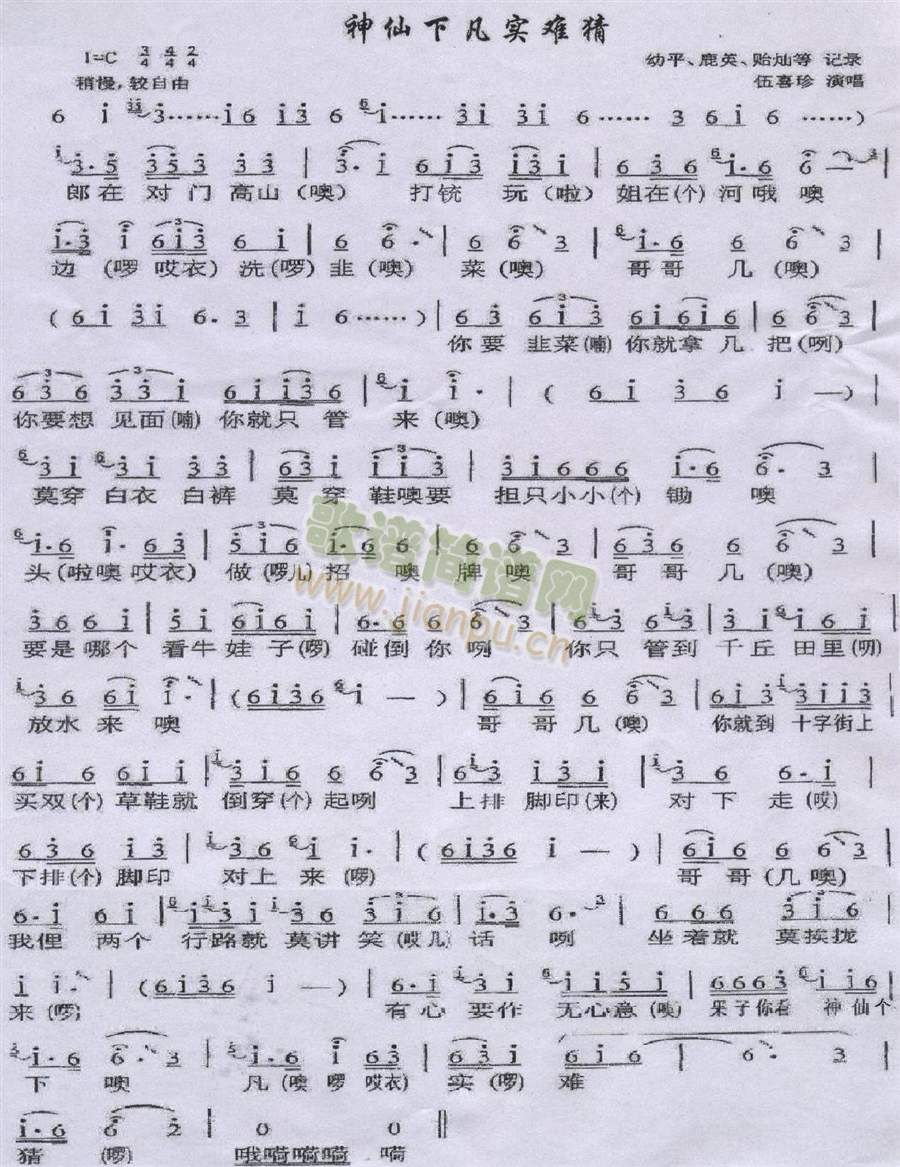 神仙下凡实难猜
1=C 3/4 4/4 2/4
幼平、鹿英、贻灿等 记录
稍慢，较自由
伍喜珍 演唱
郎在 对门 高山（噢） 打铳 玩（啦） 姐在（个）河哦噢
边（啰 哎衣）洗（啰）韭（噢） 菜（噢） 哥哥 几（噢）
你要 韭菜（喃）你就拿几 把（咧）
你要想 见面（喃）你就只 管 来（噢）
莫穿 白衣 白裤 莫穿 鞋噢要 担只小小（个）锄 噢
头（啦噢 哎衣） 做（啰儿）招 噢 牌 噢 哥哥 几（噢）
要是 哪个 看牛 娃子（啰）碰倒 你 咧 你只 管到 千丘 田里（咧）
放水 来 噢 哥哥 几（噢） 你就到 十字街上
买双（个）草鞋就 倒穿（个）起咧 上排 脚印（来） 对下 走（哎）
下排（个）脚印 对上 来（啰） 哥哥（几噢）
我俚 两个 行路就 莫讲 笑（哎几）话 咧 坐着就 莫挨拢
来（啰） 有心 要作 无心意（噢）呆子你看 神仙个
下 噢 凡（噢 啰 哎衣）实（啰）难
猜 （啰） 哦嗬嗬嗬 嗬
歌谱简谱网
www.jianpu.cn